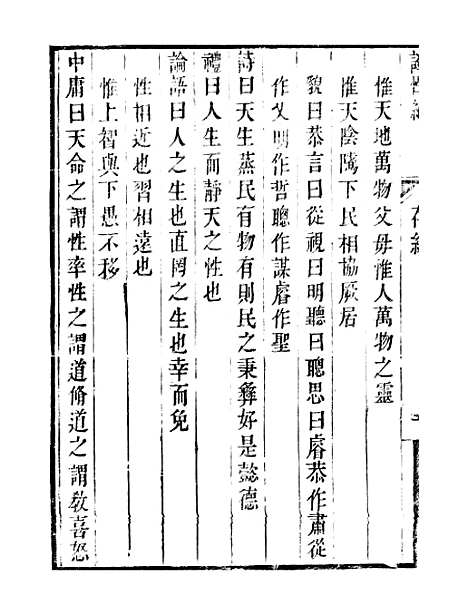 惟天地萬物父母惟人萬物之靈
惟天陰隲下民相協厥居
貌曰恭言曰從視曰明聽曰聰思曰睿恭作肅從
作乂明作哲聰作謀睿作聖
詩曰天生蒸民有物有則民之秉彝好是懿德
禮曰人生而靜天之性也
論語曰人之生也直罔之生也幸而免
性相近也習相遠也
惟上智與下愚不移
中庸曰天命之謂性率性之謂道脩道之謂敎喜怒